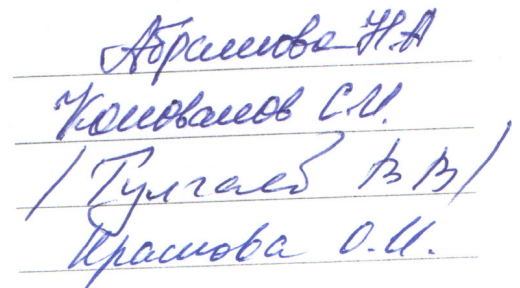 Абрамова Н А
Коновалов С.И.
/ Гулгаев В В /
Краснова О.И.